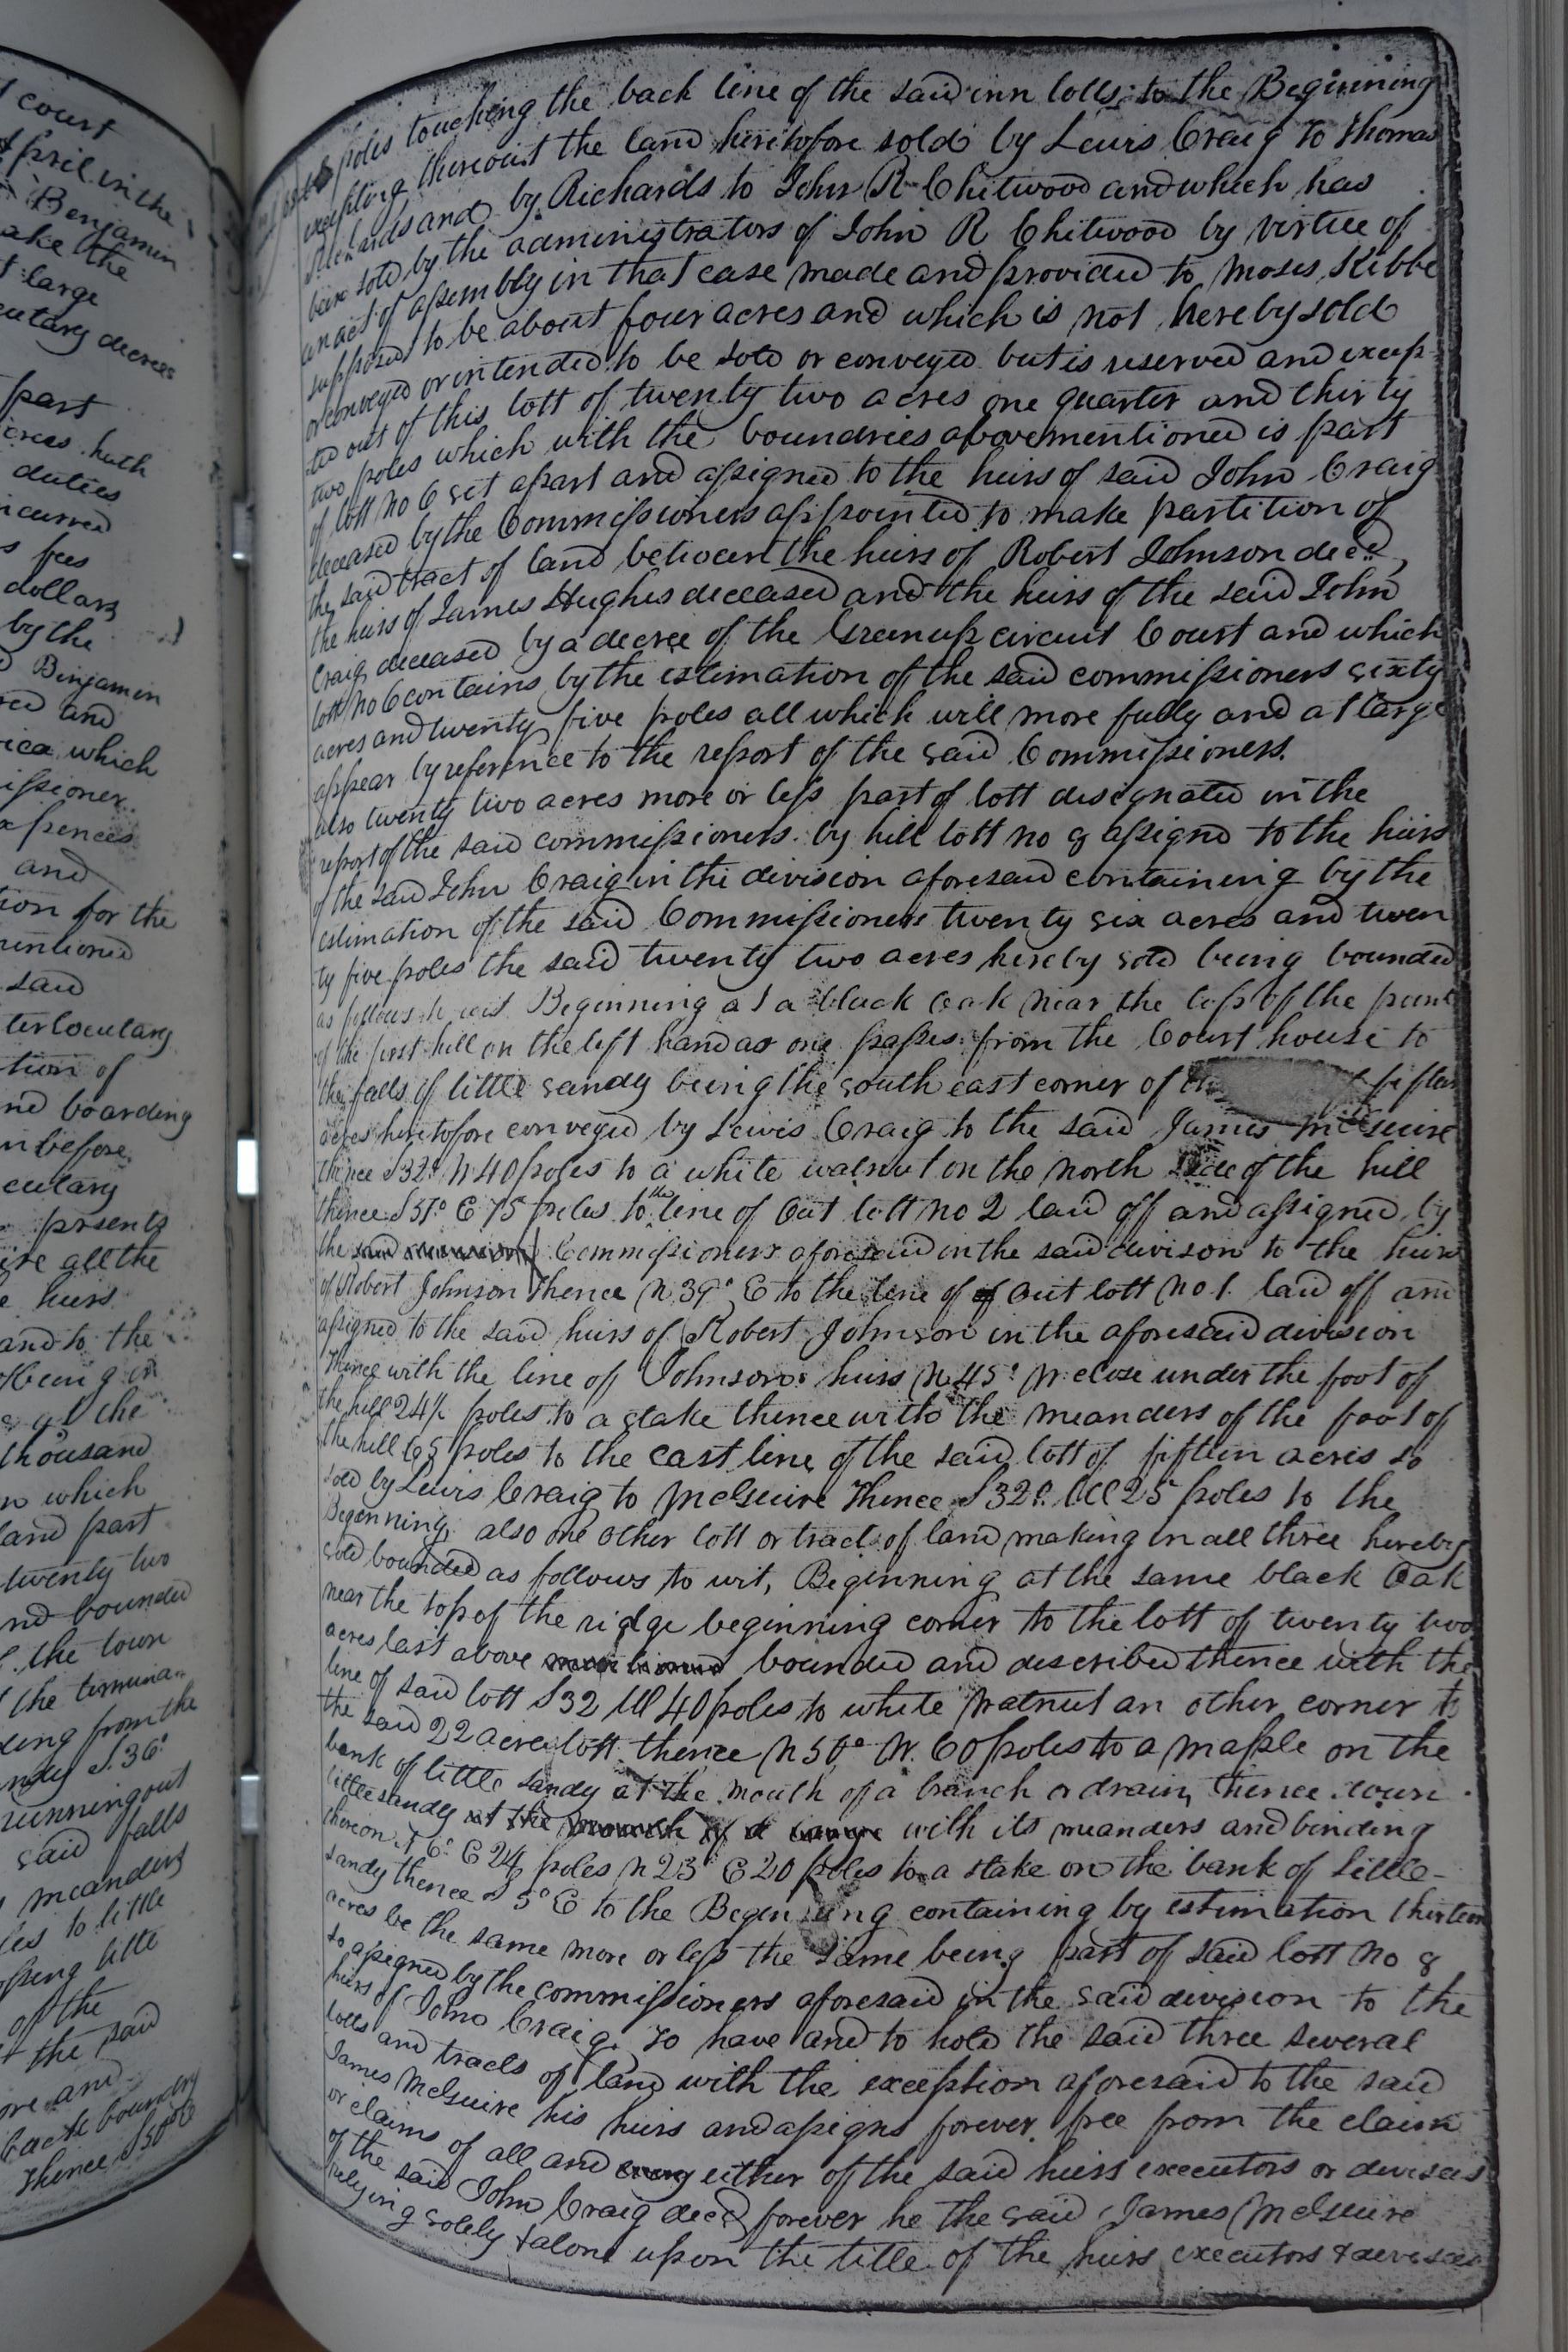 court
April in the
Benjamin
ake the
t large
cutary decrees
part
crees hath
duties
incurred
s fees
dollars
by the
Benjamin
red and
rica which
issioner
xpences
and
tion for the
mentioned
said
terlocutary
tion of
nd boarding
n before
cutary
presents
ire all the
e heirs
and to the
being in
at the
thousand
n which
land part
twenty two
nd bounded
the town
the termina
ding from the
ndy S. 36°
running out
said falls
meanders
les to little
ssing little
of the
the said
ore and
back boundry
Thence S 50° E
poles touching the back line of the said inn lotts to the Beginning
excepting thereout the land heretofore sold by Lewis Craig to Thomas
Richards and by Richards to John R Chitwood and which has
been sold by the administrators of John R Chitwood by virtue of
an act of assembly in that case made and provided to Moses Kibbe
supposed to be about four acres and which is not hereby sold
or conveyed or intended to be sold or conveyed but is reserved and excep
ted out of this lott of twenty two acres one quarter and thirty
two poles which with the boundries abovementioned is part
of lott no 6 set apart and assigned to the heirs of said John Craig
deceased by the Commissioners appointed to make partition of
the said tract of land between the heirs of Robert Johnson decd,
the heirs of James Hughes deceased and the heirs of the said John
Craig deceased by a decree of the Greenup circuit Court and which
lott no 6 contains by the estimation of the said commissioners sixty
acres and twenty five poles all which will more fully and at large
appear by reference to the report of the said Commissioners.
also twenty two acres more or less part of lott designated in the
report of the said commissioners by hill lott no 8 assignd to the heirs
of the said John Craig in the division aforesaid containing by the
estimation of the said Commissioners twenty six acres and twen
ty five poles the said twenty two acres hereby sold being bounded
as follows to wit Beginning at a black Oak near the top of the point
of the first hill on the left hand as one passes from the Court house to
the falls of little sandy being the south east corner of fifteen
acres heretofore conveyed by Lewis Craig to the said James McGuire
thence S 32° W 40 poles to a white walnut on the north side of the hill
thence S 51° E 75 poles to the line of Out lott no 2 laid off and assigned by
the said Commissioners aforesaid in the said divison to the heirs
of Robert Johnson thence N 39° E to the line of of out lott no 1. laid off and
assigned to the said heirs of Robert Johnson in the aforesaid division
Thence with the line of Johnsons heirs N 45° W close under the foot of
the hill 24½ poles to a stake thence with the meanders of the foot of
the hill 65 poles to the east line of the said lott of fifteen acres so
sold by Lewis Craig to McGuire Thence S 32° W 25 poles to the
Beginning also one other lott or tract of land making in all three hereby
sold bounded as follows to wit, Beginning at the same black Oak
near the top of the ridge beginning corner to the lott of twenty two
acres last above mentioned bounded and described thence with the
line of said lott S 32 W 40 poles to white Walnut an other corner to
the said 22 acre lott thence N 50° W. 60 poles to a maple on the
bank of little sandy at the mouth of a branch or drain, thence down
little sandy at the mouth of a with its meanders and binding
thereon N 6° E 24 poles N 23° E 20 poles to a stake on the bank of Little-
sandy thence S 5° E to the Beginning containing by estimation thirteen
acres be the same more or less the same being part of said lott no 8
so assigned by the commissioners aforesaid in the said division to the
heirs of John Craig. To have and to hold the said three several
lotts and tracts of land with the exception aforesaid to the said
James McGuire his heirs and assigns forever free from the claim
or claims of all and every either of the said heirs executors or devisees
of the said John Craig decd forever he the said James McGuire
relying solely & alone upon the title of the heirs executors & devisees